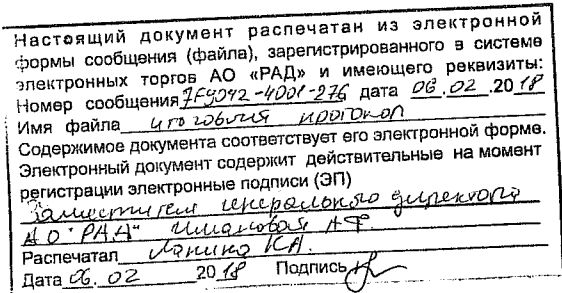 Настоящий документ распечатан из электронной
формы сообщения (файла), зарегистрированного в системе
электронных торгов АО «РАД» и имеющего реквизиты:
Номер сообщения 7F9042-4001-276 дата 06.02.2018
Имя файла итоговый протокол
Содержимое документа соответствует его электронной форме.
Электронный документ содержит действительные на момент
регистрации электронные подписи (ЭП)
Заместителем генерального директора
АО "РАД" А.Ф.
Распечатал К.А.
Дата 06.02 2018 Подпись